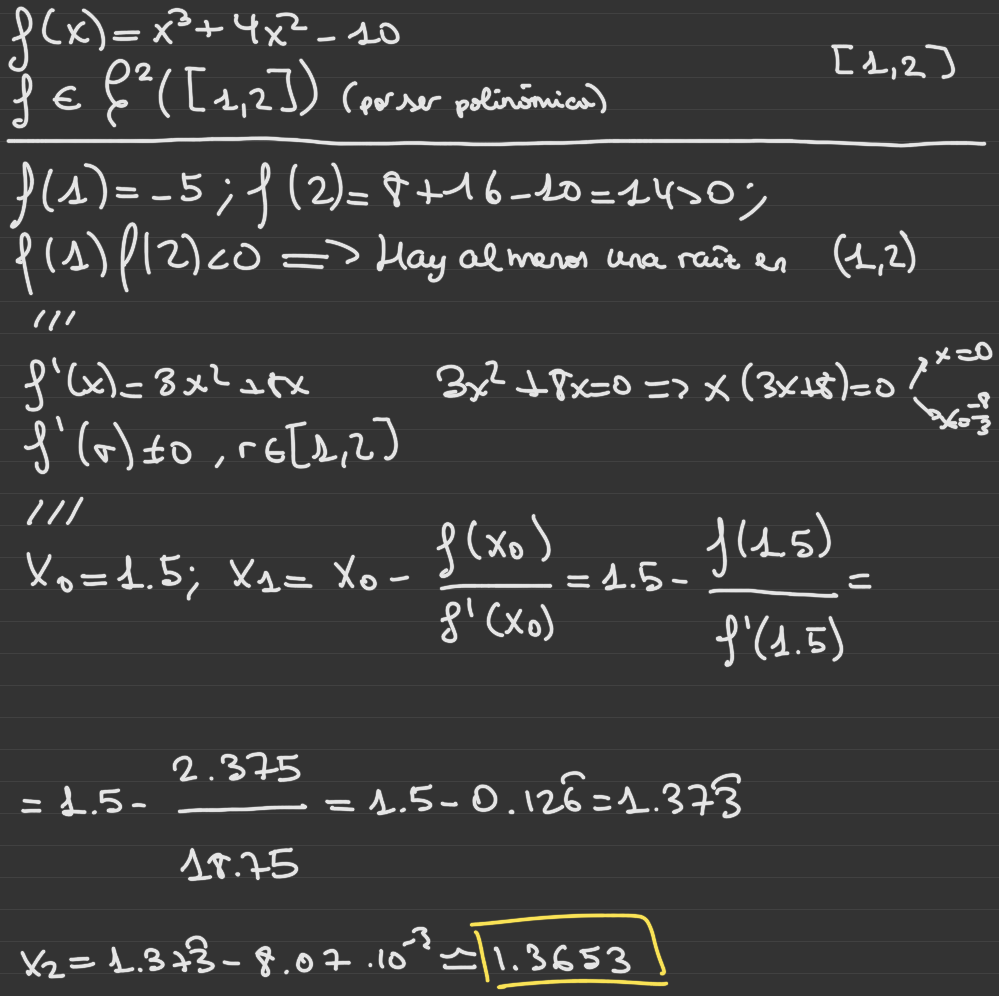 f(x) = x³ + 4x² - 10
[1,2]
f ∈ ℰ²([1,2]) (por ser polinómica)
f(1) = -5 ; f(2) = 8+16-10 = 14>0 ;
f(1) f(2) < 0 => Hay al menos una raíz en (1,2)
///
f'(x) = 3x² + 8x    3x² + 8x = 0 => x (3x+8) = 0 x=0 x=-8/3
f'(r) ≠ 0 , r ∈ [1,2]
///
X₀ = 1.5; X₁ = X₀ - f(X₀)/f'(X₀) = 1.5 - f(1.5)/f'(1.5) =
= 1.5 - 2.375/18.75 = 1.5 - 0.126̂ = 1.373̂
X₂ = 1.373̂ - 8.07 · 10⁻³ ≃ 1.3653